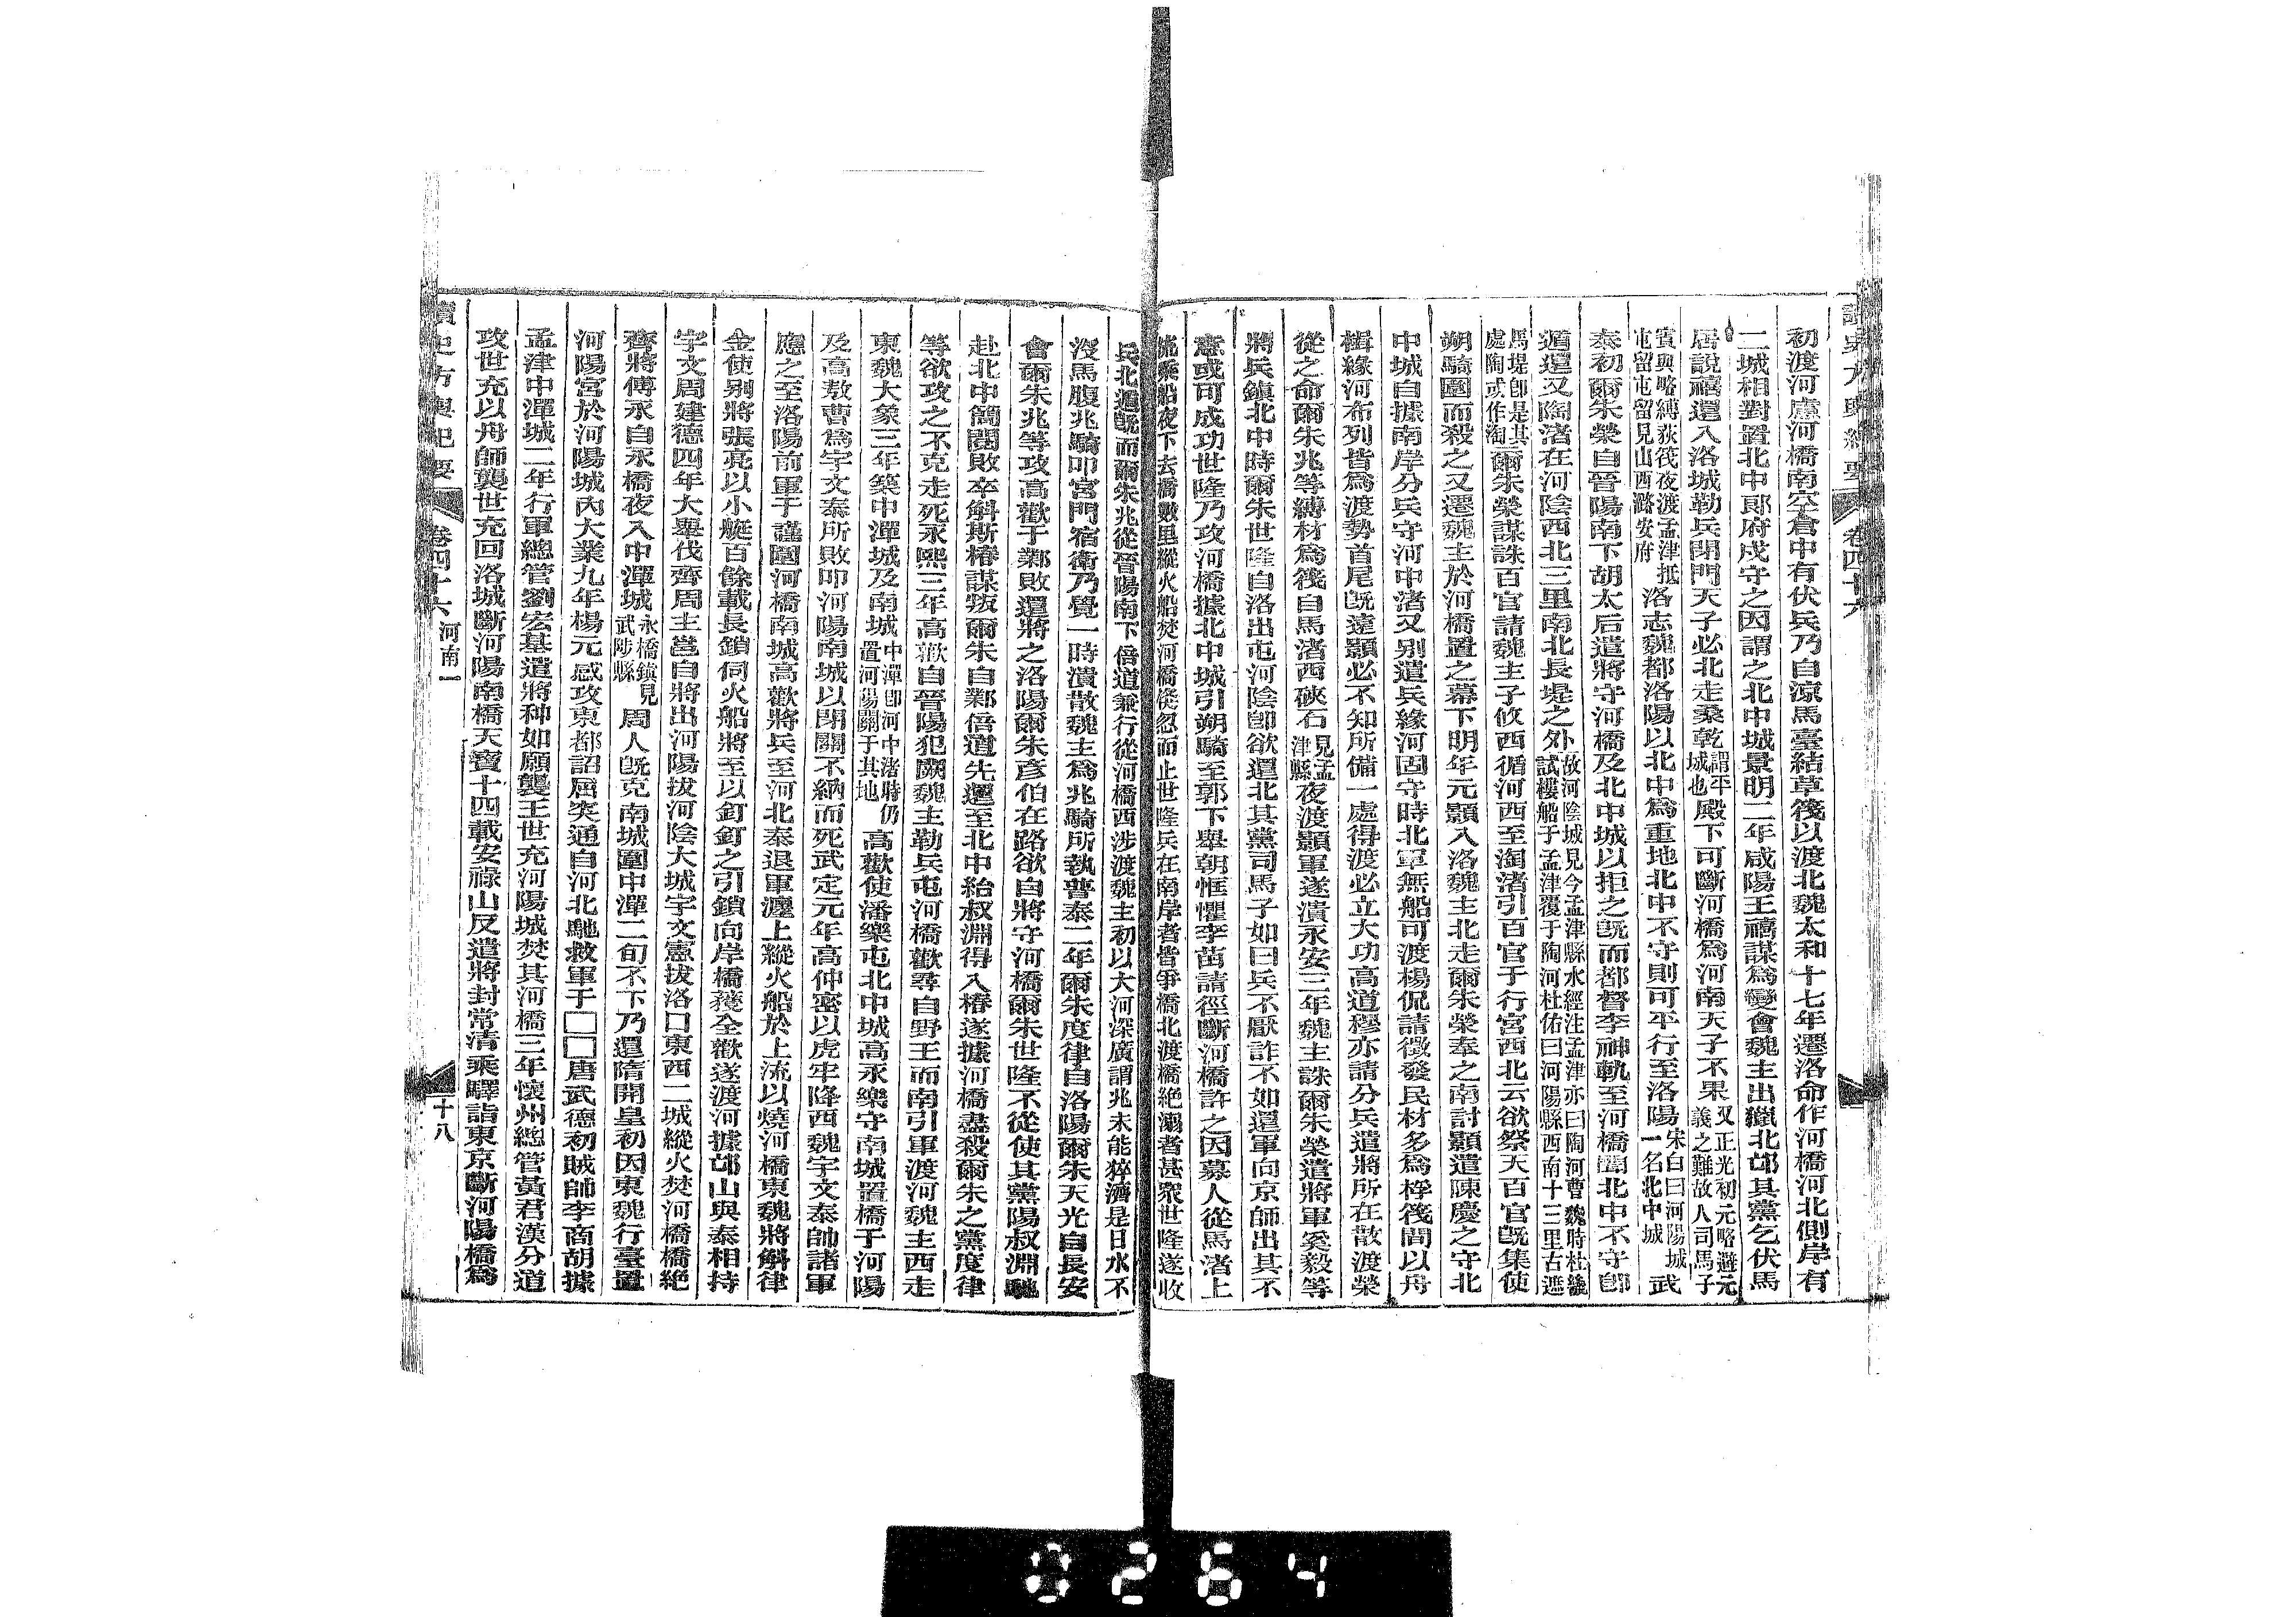 初渡河慮河橋南空倉中有伏兵乃自涼馬臺結草筏以渡北魏太和十七年遷洛命作河橋河北側岸有
二城相對置北中郎府戍守之因謂之北中城景明二年咸陽王禧謀為變會魏主出獵北邙其黨乞伏馬
居說禧還入洛城勒兵閉門天子必北走桑乾謂平城也殿下可斷河橋為河南天子不果又正光初元略避元義之難故人司馬子
賓與略縛荻筏夜渡孟津抵屯留屯留見山西潞安府洛志魏都洛陽以北中為重地北中不守則可平行至洛陽宋白曰河陽城一名北中城武
泰初爾朱榮自晉陽南下胡太后遣將守河橋及北中城以拒之旣而都督李神軌至河橋聞北中不守卽
遁還又陶渚在河陰西北三里南北長堤之外故河陰城見今孟津縣水經注孟津亦曰陶河曹魏時杜畿試樓船于孟津覆于陶河杜佑曰河陽縣西南十三里古遮
馬堤卽是其處陶或作淘爾朱榮謀誅百官請魏主子攸西循河西至淘渚引百官于行宮西北云欲祭天百官旣集使
朔騎圍而殺之又遷魏主於河橋置之幕下明年元顥入洛魏主北走爾朱榮奉之南討顥遣陳慶之守北
中城自據南岸分兵守河中渚又别遣兵緣河固守時北軍無船可渡楊侃請徵發民材多為桴筏間以舟
楫緣河布列皆為渡勢首尾旣遠顥必不知所備一處得渡必立大功高道穆亦請分兵遣將所在散渡榮
從之命爾朱兆等縛材為筏自馬渚西硤石見孟津縣夜渡顥軍遂潰永安三年魏主誅爾朱榮遣將軍奚毅等
將兵鎮北中時爾朱世隆自洛出屯河陰卽欲還北其黨司馬子如曰兵不厭詐不如還軍向京師出其不
意或可成功世隆乃攻河橋據北中城引朔騎至郭下舉朝恇懼李苗請徑斷河橋許之因募人從馬渚上
流乘船夜下去橋數里縱火船焚河橋倏忽而止世隆兵在南岸者皆爭橋北渡橋絶溺者甚衆世隆遂收
兵北遁旣而爾朱兆從晉陽南下倍道兼行從河橋西涉渡魏主初以大河深廣謂兆未能猝濟是日水不
沒馬腹兆騎叩宮門宿衛乃覺一時潰散魏主為兆騎所執普泰二年爾朱度律自洛陽爾朱天光自長安
會爾朱兆等攻高歡于鄴敗還將之洛陽爾朱彥伯在路欲自將守河橋爾朱世隆不從使其黨陽叔淵馳
赴北中簡閱敗卒斛斯椿謀叛爾朱自鄴倍道先還至北中紿叔淵得入椿遂據河橋盡殺爾朱之黨度律
等欲攻之不克走死永熙三年高歡自晉陽犯闕魏主勒兵屯河橋歡尋自野王而南引軍渡河魏主西走
東魏大象三年築中潬城及南城中潬卽河中渚時仍置河陽關于其地高歡使潘樂屯北中城高永樂守南城置橋于河陽
及高敖曹為宇文泰所敗叩河陽南城以閉關不納而死武定元年高仲密以虎牢降西魏宇文泰帥諸軍
應之至洛陽前軍于謹圍河橋南城高歡將兵至河北泰退軍瀍上縱火船於上流以燒河橋東魏將斛律
金使别將張亮以小艇百餘載長鎖伺火船將至以釘釘之引鎖向岸橋獲全歡遂渡河據邙山與泰相持
宇文周建德四年大舉伐齊周主邕自將出河陽拔河陰大城宇文憲拔洛口東西二城縱火焚河橋橋絶
齊將傅永自永橋夜入中潬城永橋鎮見武陟縣周人旣克南城圍中潬二旬不下乃還隋開皇初因東魏行臺置
河陽宮於河陽城內大業九年楊元感攻東都詔屈突通自河北馳救軍于□□唐武德初賊師李商胡據
孟津中潬城二年行軍總管劉宏基遣將种如願襲王世充河陽城焚其河橋三年懷州總管黃君漢分道
攻世充以舟師襲世充回洛城斷河陽南橋天寶十四載安祿山反遣將封常清乘驛詣東京斷河陽橋為
讀史方輿紀要
卷四十六 河南一
十八